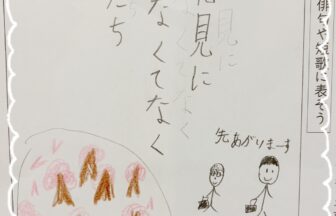 俳句や短歌に表そう
見に
なくてなく
たち
先あがりまーす